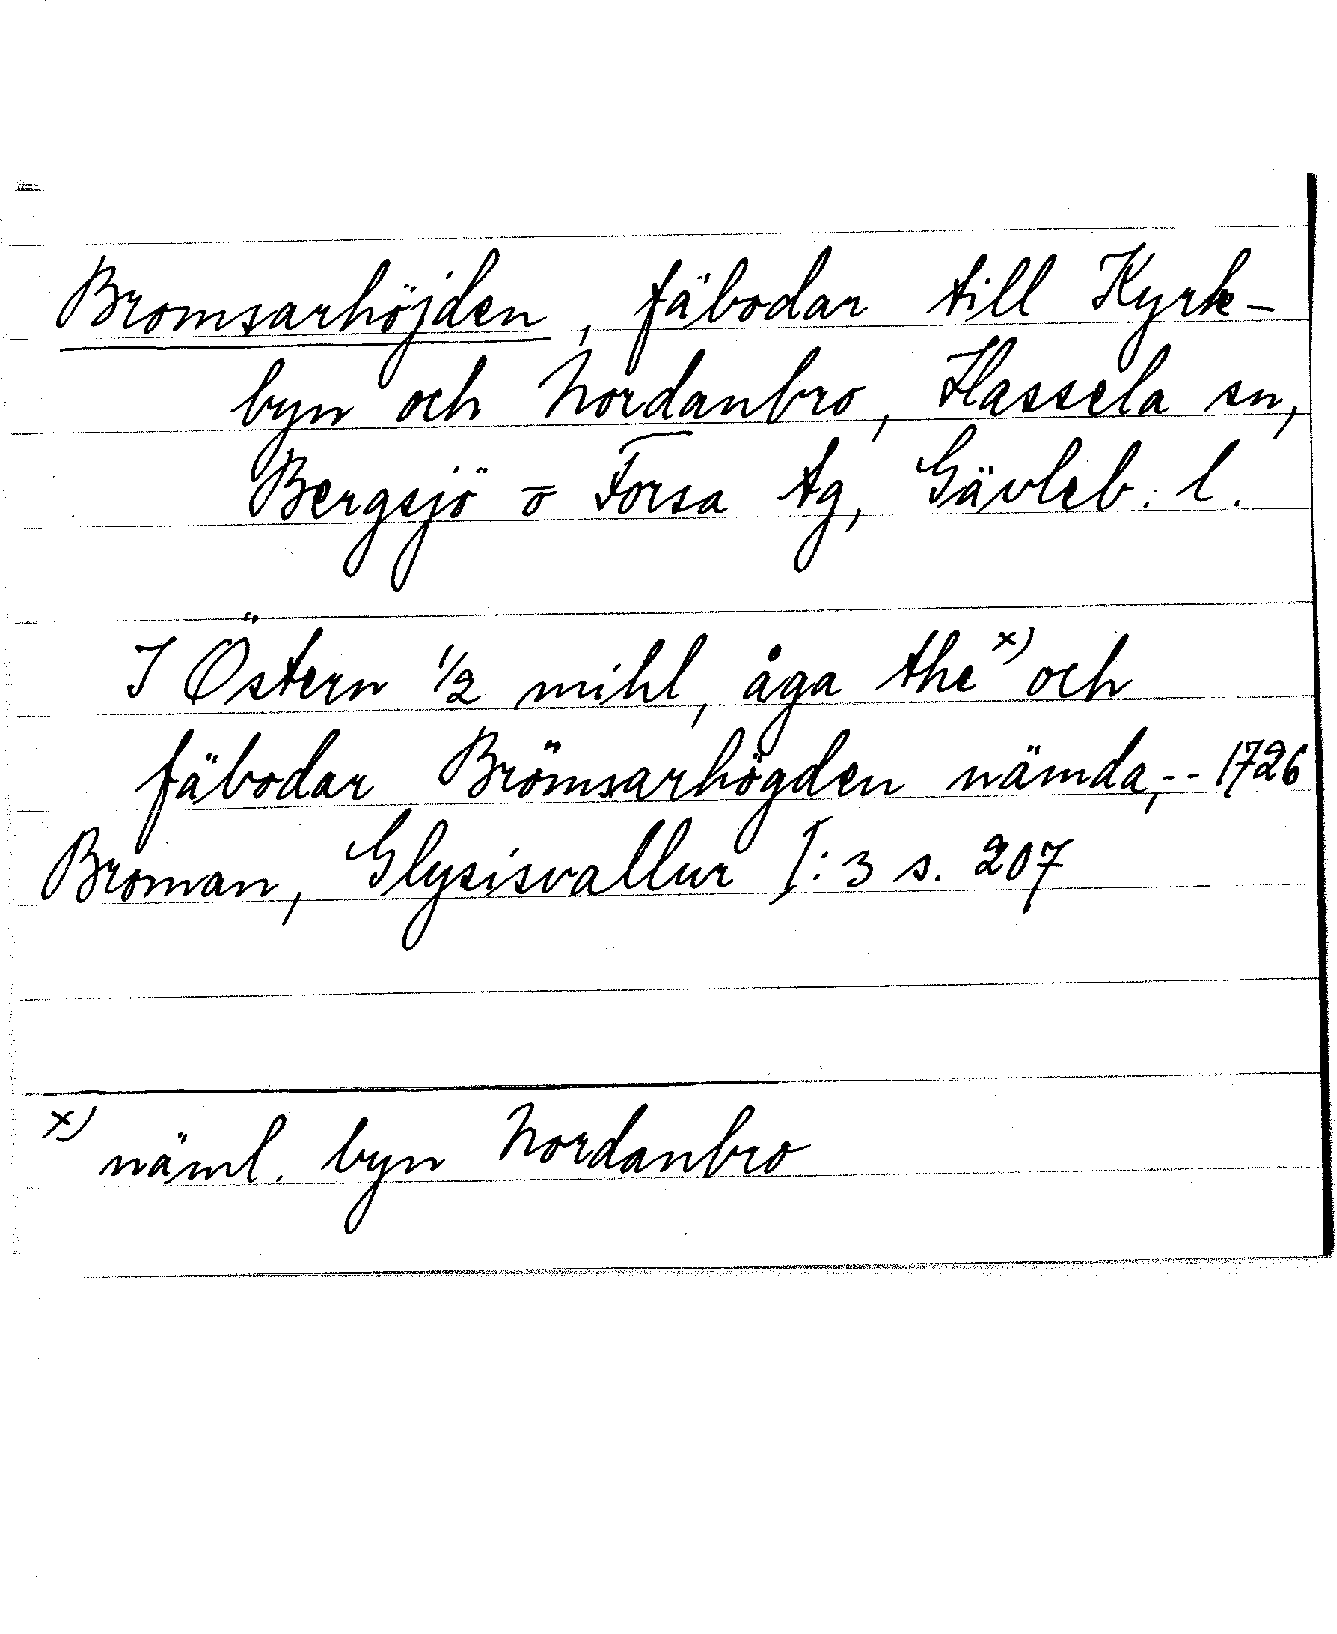 Bromsarhöjden, fäbodar till Kyrk-
byn och Nordanbro, Hassela sn,
Bergsjö o Forsa tg, Gävleb. l.
I Östern 1/2 mihl, åga the x) och
fäbodar Brömsarhögden nämda,-- 1726
Broman, Glysisvallur I:3 s. 207
x) näml. byn Nordanbro